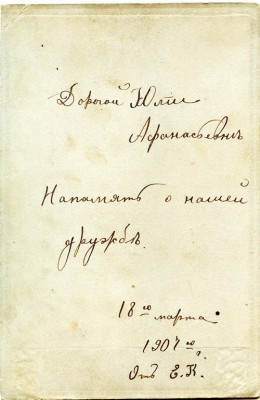 Дорогой Юліи
Афанасьевнѣ
Напамять о нашей
дружбѣ.
18го марта
1907 го г.
Отъ Е. К.